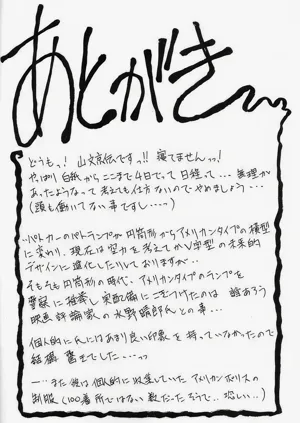 あとがき
どうもっ! 山文京伝ですっ!! 寝てませんっっ!
やっぱり白紙からここまで4日でって日程って…無理が
あったようなって考えても仕方ないのでやめましょう…
(頭も働いてない事ですし…)
パトカーのパトランプが円筒形からアメリカンタイプの横型
に変わり、現在は空力を考えてかV字型の未来的
デザインに進化したりしておりますが…
そもそも円筒形の時代、アメリカンタイプのランプを
警察に推薦し実配備にこぎつけたのは 誰あろう
映画評論家の水野晴郎氏との事…
個人的に氏にはあまり良い印象を持っていなかったので
結構驚きでした…っっ
…また彼は個人的に収集していたアメリカンポリスの
制服(100着所ではない数だったそうで…恐い…)